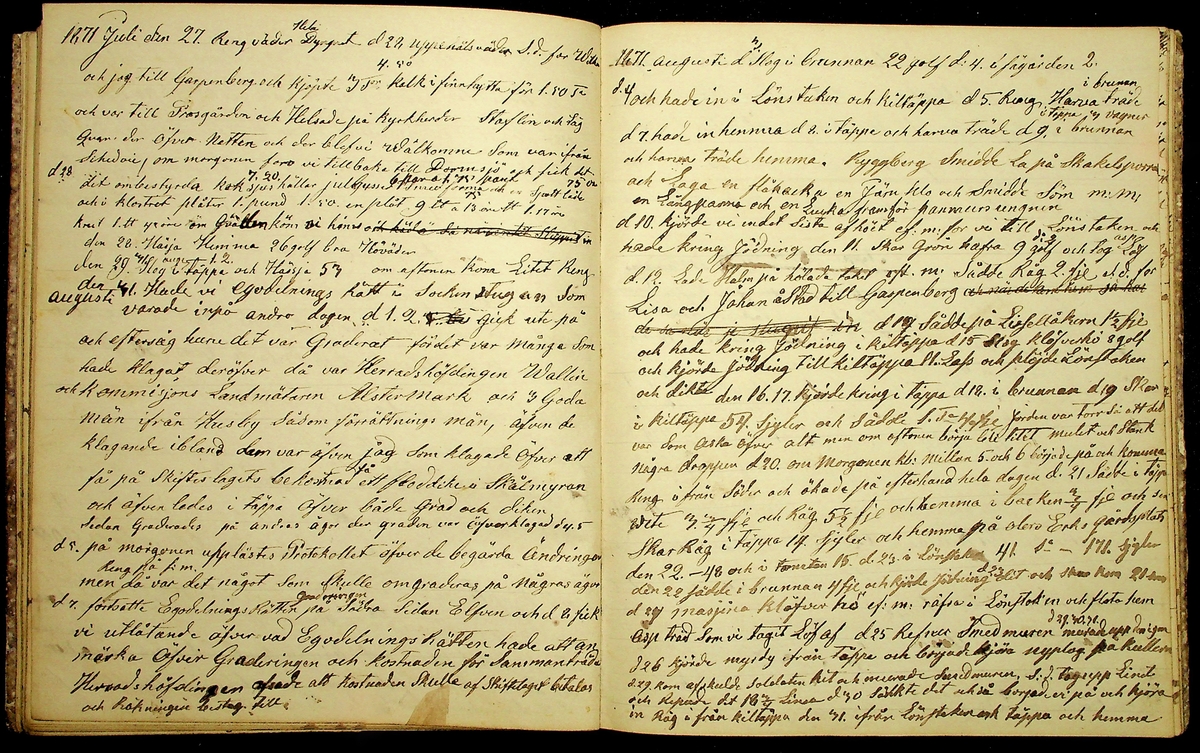 1871 Juli den 27. Reng väder Hela Dygnet d 28 uppehälsväder S.d. for Wilh
och jag till Garpenberg och Kjöpte 3 Tr kalk i finnhytta för 1.50 Tr
4. 50
och var till Prosgården och Helsade på Kyrkherder Staflin och låg
Qvar der Öfver Natten och der blefvi Wälkomne Som var ifrån
Schedvie, om morgonen foro vi tillbaka till Dormsjö och fick det
d 28
det ombestyrda
7. 20.
och i klostret plåter 1. pund 1:50. en plåt 9 ℔ a 13 öre ℔ 1.17 öre
den 28. Häsja Hemma 26 golf bra Höväder
den 29 Slog i täppa och Häsja 57 om aftonen kom Litet Reng
den 31. Hade vi Egodelnings Rätt i Socken stugan Som
augusti varade inpå andro dagen d 1. 2. Gick ute på
och eftersåg huru det var Graderat fördet var många Som
hade klagat deröfver då var Herradshöfdingen Wallin
och Kommisjons Landmätarn Alstermark och 3 Goda
män ifrån Husby Såsom förrättnings män, äfven de
klagande ibland dem var äfven jag Som klagade Öfver att
få på Skifteslagets bekostnad ett Stoddike i Skålmyran
och äfven ledes i täppa Öfver både Grad och diken
Sedan Graderades på andras ägor der graden var Öfverklagad d 4. 5
d 5. på morgonen upplästes Protokollet öfver de begärda Ändringar
Reng på f: m.
men då var det något Som Skulle omgraderas på Någras ägor
d 7. fortsatte Egodelnings Rätten Graderingen på Södra Sidan Elfven och d 8 fick
vi utlåtande öfver vad Egodelnings Rätten hade att an
märka Öfver Graderingen och kostnaden för Sammanträde
Herradshöfdingen att kostnaden Skulle af Skifteslaget betalas
och Räkningen besteg till
1871. augusti d 3. Slog i brunnan 22 golf d: 4. i sjögården 2.
d. 4 och hade in i Lönstaken och kiltäppa d 5. Reng. Harva träde
i brunnan
i täppa 3 vagner
d 7. hade in hemma d 8. i täppe och harva träde d 9 i brunnan
och harva träde hemma. Ryggberg Smidde La på Skakelsporra
och Laga en flåhacka en Järn klo och Smidde Söm m: m;
en Långpanna och en Lucka framför pannmursungnen
d 10. kjörde vi indet Sista af höet ef. m. for vi till Lönstaken och
hade kring Jödning den 11. Skar Grön hafra 9 golf och tog Löf
d. 12. Lade Halm på efr. m: Sådde Råg 2 fje S.d. for
Lisa och Johan åstad till Garpenberg
d 14 Sådde på Lisselåkern 1½ fje
och hade kring Jödning i kiltäppa d 15 Slog klöfverhö 8 golf
och kjörde Jödning till kiltäppa 11. Lass och plöjde Lönstaken
och dikte den 16. 17. kjörde kring i täppa d 18. i brunnan d 19 Skar
i kiltäppe 54 Syler och Sådde Jorden var torr Så att det
var Som aska Öfver alt men om aftonen börja bli litet mulet och Stänk
Några droppar d 20. om Morgonen kl: Millan 5 och 6 började på och komma
Reng ifrån Söder och ökade på efterhand hela dagen d: 21 Sådde i täppa
och Råg 5 fje och hemma i backen fje och sen
Skar Råg i täppa 14. Syler och hemma på Oloro Erks gårdsplats
den 22. – 48 och i tomten 15. d 23. i Lönstaken 41. S:a – 178. Syler
den 22 sådde i brunnan 4 fje och kjörde Jödning dit och Skar Korn
d 24 maspina klöfver hö ef. m: räfsa i Lönstaken och flota hem
Aspe träd Som vi tagit Löf af d 25 Refver Smedmuren
d 29. 30. 31.
d 26 kjörde myrdy ifrån täppe och började kjöra nyplog på kullen
d 29. Kom afskulde Soldaten Kit och murade Smedmuren, S.d. tog upp Lint
och Repade det d 30 Sådkte det också började vi på och kjöra
in Råg ifrån kiltäppa den 31. ifrån Lönstaken och täppa och hemma